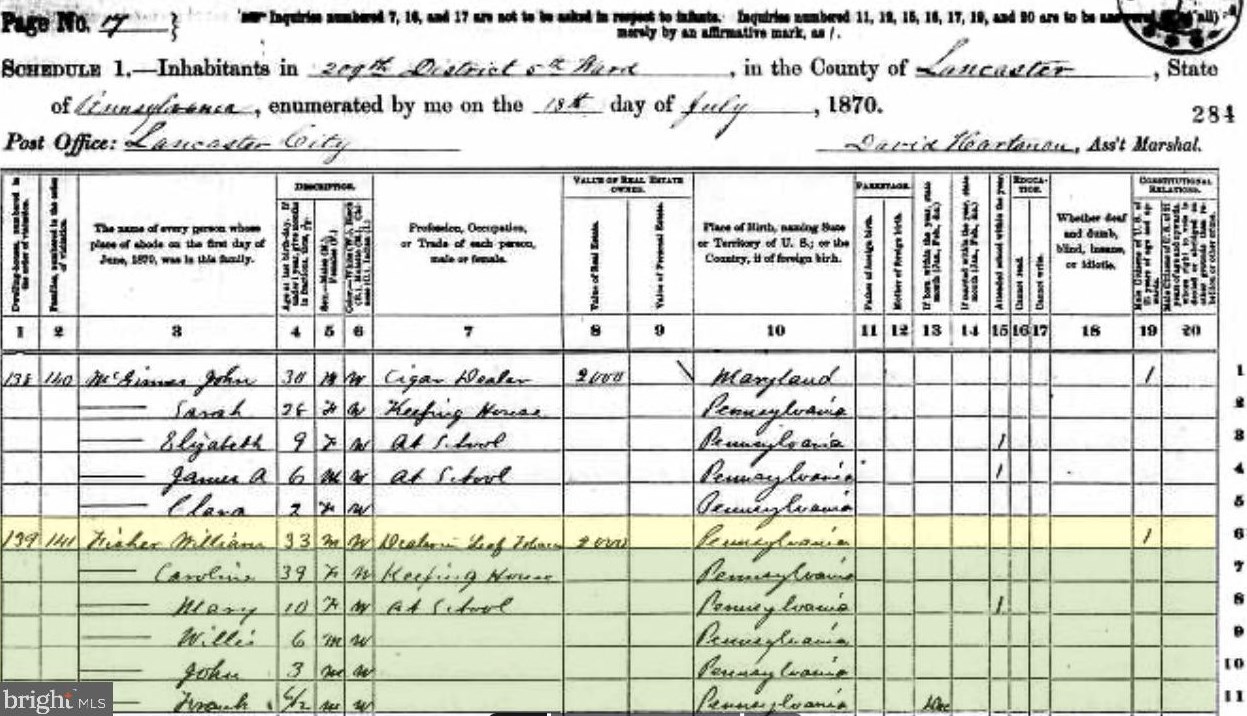 Page No. 17
Inquiries numbered 7, 16, and 17 are not to be asked in respect to infants. Inquiries numbered 11, 12, 15, 16, 17, 19, and 20 are to be
merely by an affirmative mark, as /.
SCHEDULE 1.—Inhabitants in 209th District 5th Ward, in the County of Lancaster, State
of Pennsylvania, enumerated by me on the 18th day of July, 1870.
284
Post Office: Lancaster City
David Hartman, Ass't Marshal.
Dwelling-houses, numbered in the order of visitation.
Families, numbered in the order of visitation.
The name of every person whose place of abode on the first day of June, 1870, was in this family.
DESCRIPTION.
Age at last birth-day. If under 1 year, give months in fractions, thus,
Sex.—Males (M.), Females (F.)
Color.—White (W.), Black (B.), Mulatto (M.), Chinese (C.), Indian (I.)
Profession, Occupation, or Trade of each person, male or female.
VALUE OF REAL ESTATE OWNED.
Value of Real Estate.
Value of Personal Estate.
Place of Birth, naming State or Territory of U. S.; or the Country, if of foreign birth.
PARENTAGE.
Father of foreign birth.
Mother of foreign birth.
If born within the year, state month (Jan., Feb., &c.)
If married within the year, state month (Jan., Feb., &c.)
Attended school within the year.
EDUCATION.
Cannot read.
Cannot write.
Whether deaf and dumb, blind, insane, or idiotic.
CONSTITUTIONAL RELATIONS.
Male Citizens of U. S. of 21 years of age and upwards.
1 2 3 4 5 6 7 8 9 10 11 12 13 14 15 16 17 18 19 20
138 140 McGinnes John 30 M W Cigar Dealer 2000 Maryland 1 1
Sarah 28 F W Keeping House Pennsylvania 2
Elizabeth 9 F W At School Pennsylvania 1 3
James A 6 M W At School Pennsylvania 1 4
Clara 2 F W Pennsylvania 5
139 141 Fisher William 33 M W Dealer in Leaf Tobacco 2000 Pennsylvania 1 6
Caroline 39 F W Keeping House Pennsylvania 7
Mary 10 F W At School Pennsylvania 1 8
Willie 6 M W Pennsylvania 9
John 3 M W Pennsylvania 10
Frank 6/12 M W Pennsylvania Dec 11
bright MLS